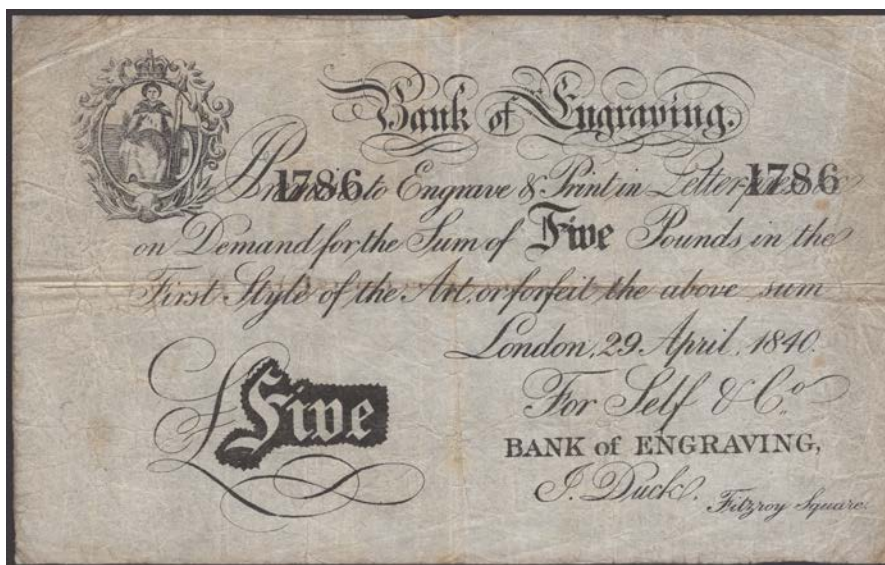 Bank of Engraving.
1786 1786
I Promise to Engrave & Print in Letter-press
on Demand for the Sum of Five Pounds in the
First Style of the Art, or forfeit the above sum
London, 29 April, 1840.
£Five
For Self & Co.
BANK of ENGRAVING,
J. Duck.
Fitzroy Square.